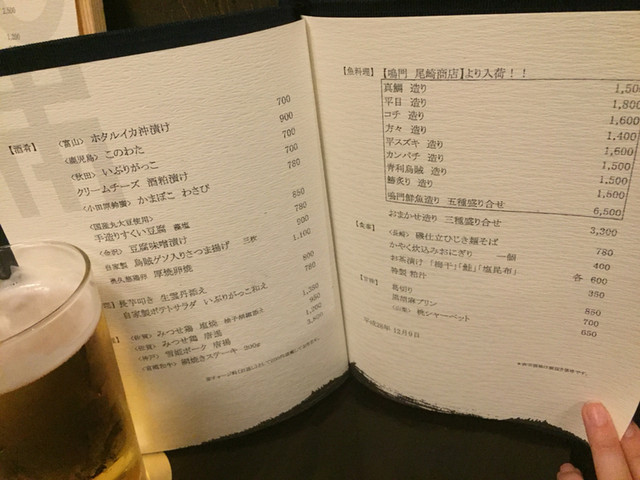 【酒肴】
〈富山〉 ホタルイカ沖漬け 700
〈鹿児島〉 このわた 900
〈秋田〉 いぶりがっこ 700
クリームチーズ 酒粕漬け 700
〈小田原鈴廣〉 かまぼこ わさび 780
〈国産丸大豆使用〉
手造りすくい豆腐 藻塩 850
〈金沢〉 豆腐味噌漬け 780
自家製 烏賊ゲソ入りさつま揚げ 三枚
奥久慈卵 厚焼卵焼
長芋叩き 生雲丹添え
自家製ポテトサラダ いぶりがっこ和え
〈佐賀〉 みつせ鶏 塩焼 柚子胡椒添え
〈佐賀〉 みつせ鶏 唐揚
〈神戸〉 雪姫ポーク 唐揚
〈宮崎和牛〉 網焼きステーキ 200g
【魚料理】 【鳴門 尾崎商店】より入荷！！
真鯛 造り 1,500
平目 造り 1,800
コチ 造り 1,600
方々 造り 1,400
平スズキ 造り 1,600
カンパチ 造り 1,500
青利烏賊 造り 1,500
鯵炙り 造り 1,500
鳴門鮮魚造り 五種盛り合せ 6,500
おまかせ造り 三種盛り合せ 3,300
【食事】
〈長崎〉 磯仕立ひじき麺そば 780
かやく炊込みおにぎり 一個 400
お茶漬け 「梅干」「鮭」「塩昆布」 各 600
特製 粕汁 350
【甘味】
葛切り 850
黒胡麻プリン 700
〈山梨〉 桃シャーベット 650
平成28年 12月9日